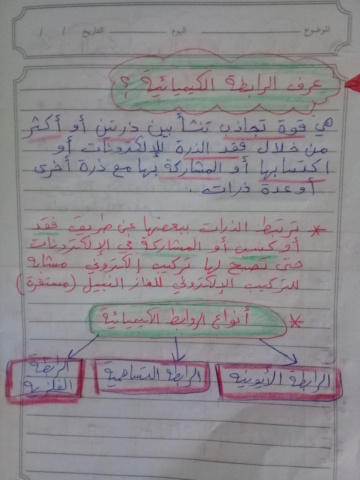 الموضوع اليوم التاريخ / /
عرف الرابطة الكيميائية ؟
هي قوة تجاذب تنشأ بين ذرتين أو أكثر
من خلال فقد الذرة للإلكترونات أو
اكتسابها أو المشاركة بها مع ذرة أخرى
أو عدة ذرات.
* ترتبط الذرات ببعضها عن طريق فقد
أو كسب أو المشاركة في الإلكترونات
حتى تصبح لها تركيب إلكتروني مشابه
للتركيب الإلكتروني للغاز النبيل (مستقرة)
* أنواع الروابط الكيميائية
الرابطة الأيونية الرابطة التساهمية الرابطة
الفلزية